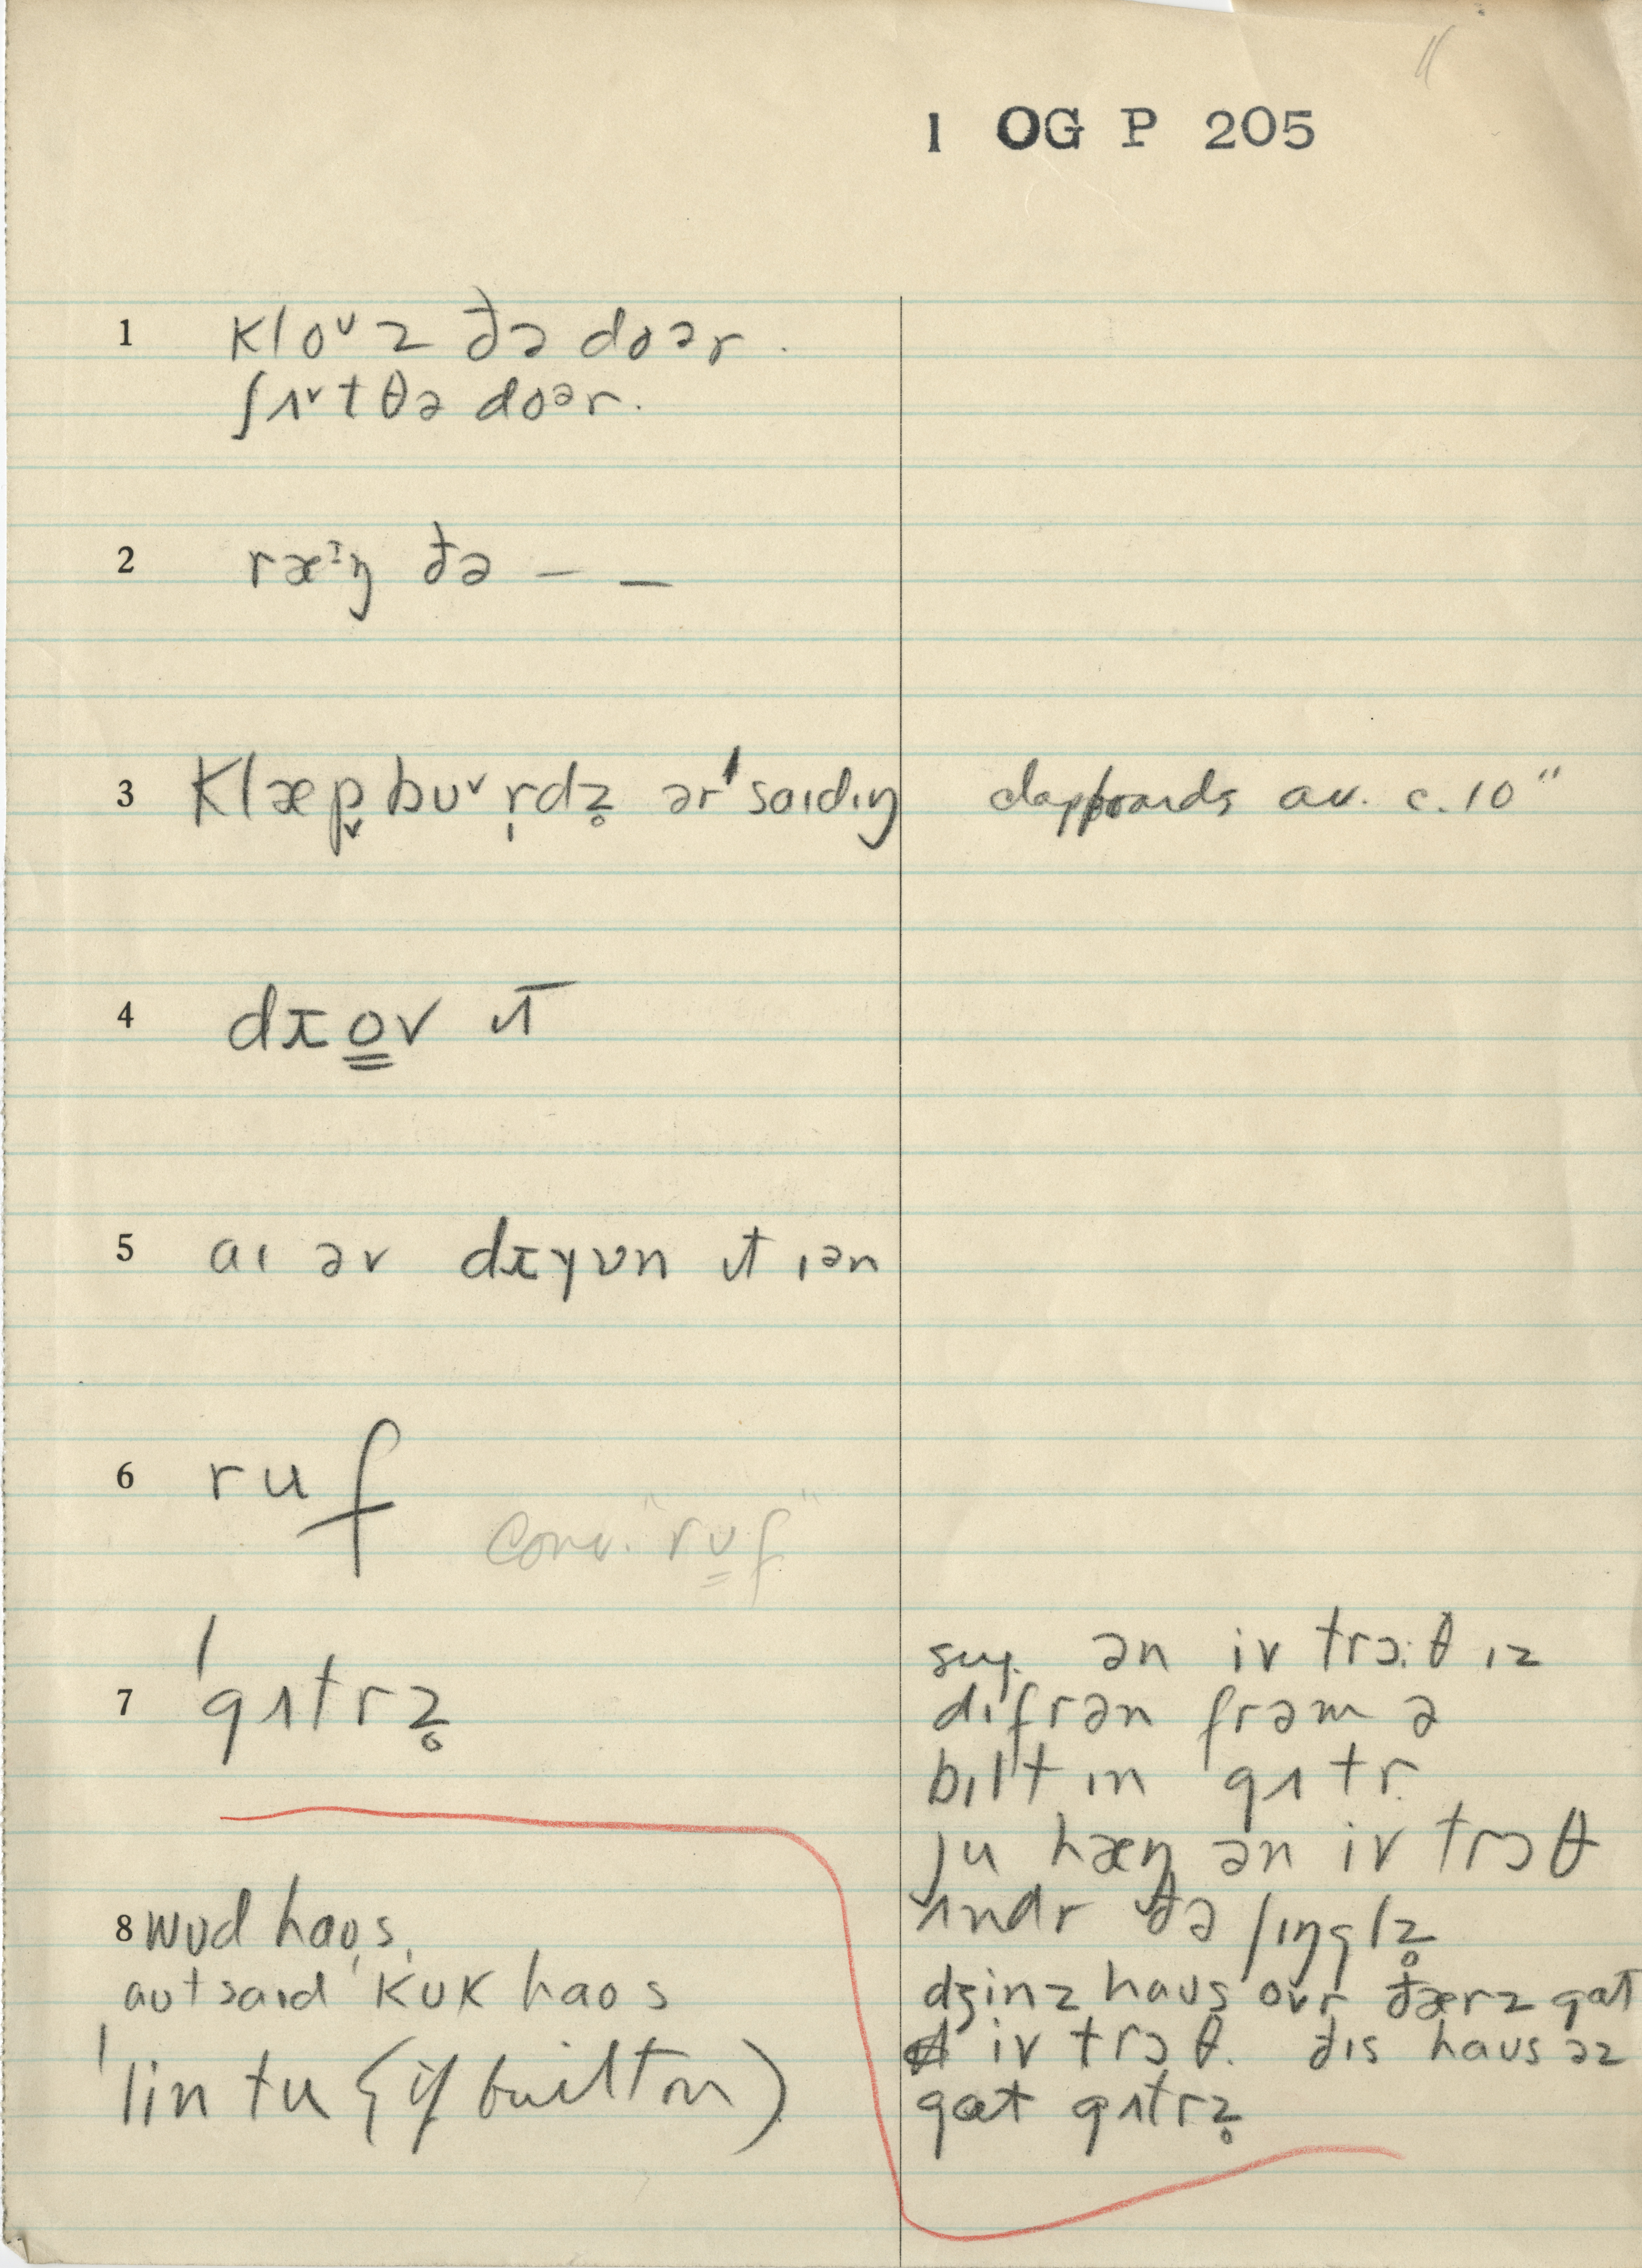 1 OG P 205
1 kloᵘz ðə doər.
ʃʌᵛt θə doər.
2 ræᶦŋ ðə — —
3 klæp̬boᵛr̩dz̥ ər ˈsaɪdɪŋ clapboards av. c. 10"
4 dɪo̳v ɪt̄
5 aɪ əv dɪyvn ɪt ɪən
6 ruf
conv. "rʊ̳f"
7 ˈgʌtrz̥
sug. ən iv trɔ:θ ɪz
dɪfrən frəm ə
bɪlt ɪn gʌtr.
ju hæŋ ən iv trɔθ
ʌndr ðə ʃɪŋglz̥
dʒinz haus ovr ðærz gat
iv trɔθ. ðɪs haus əz
gat gʌtrz̥
8 wʊd haos,
autsaɪd ˈkʊk haos
ˈlin tu (if built on)